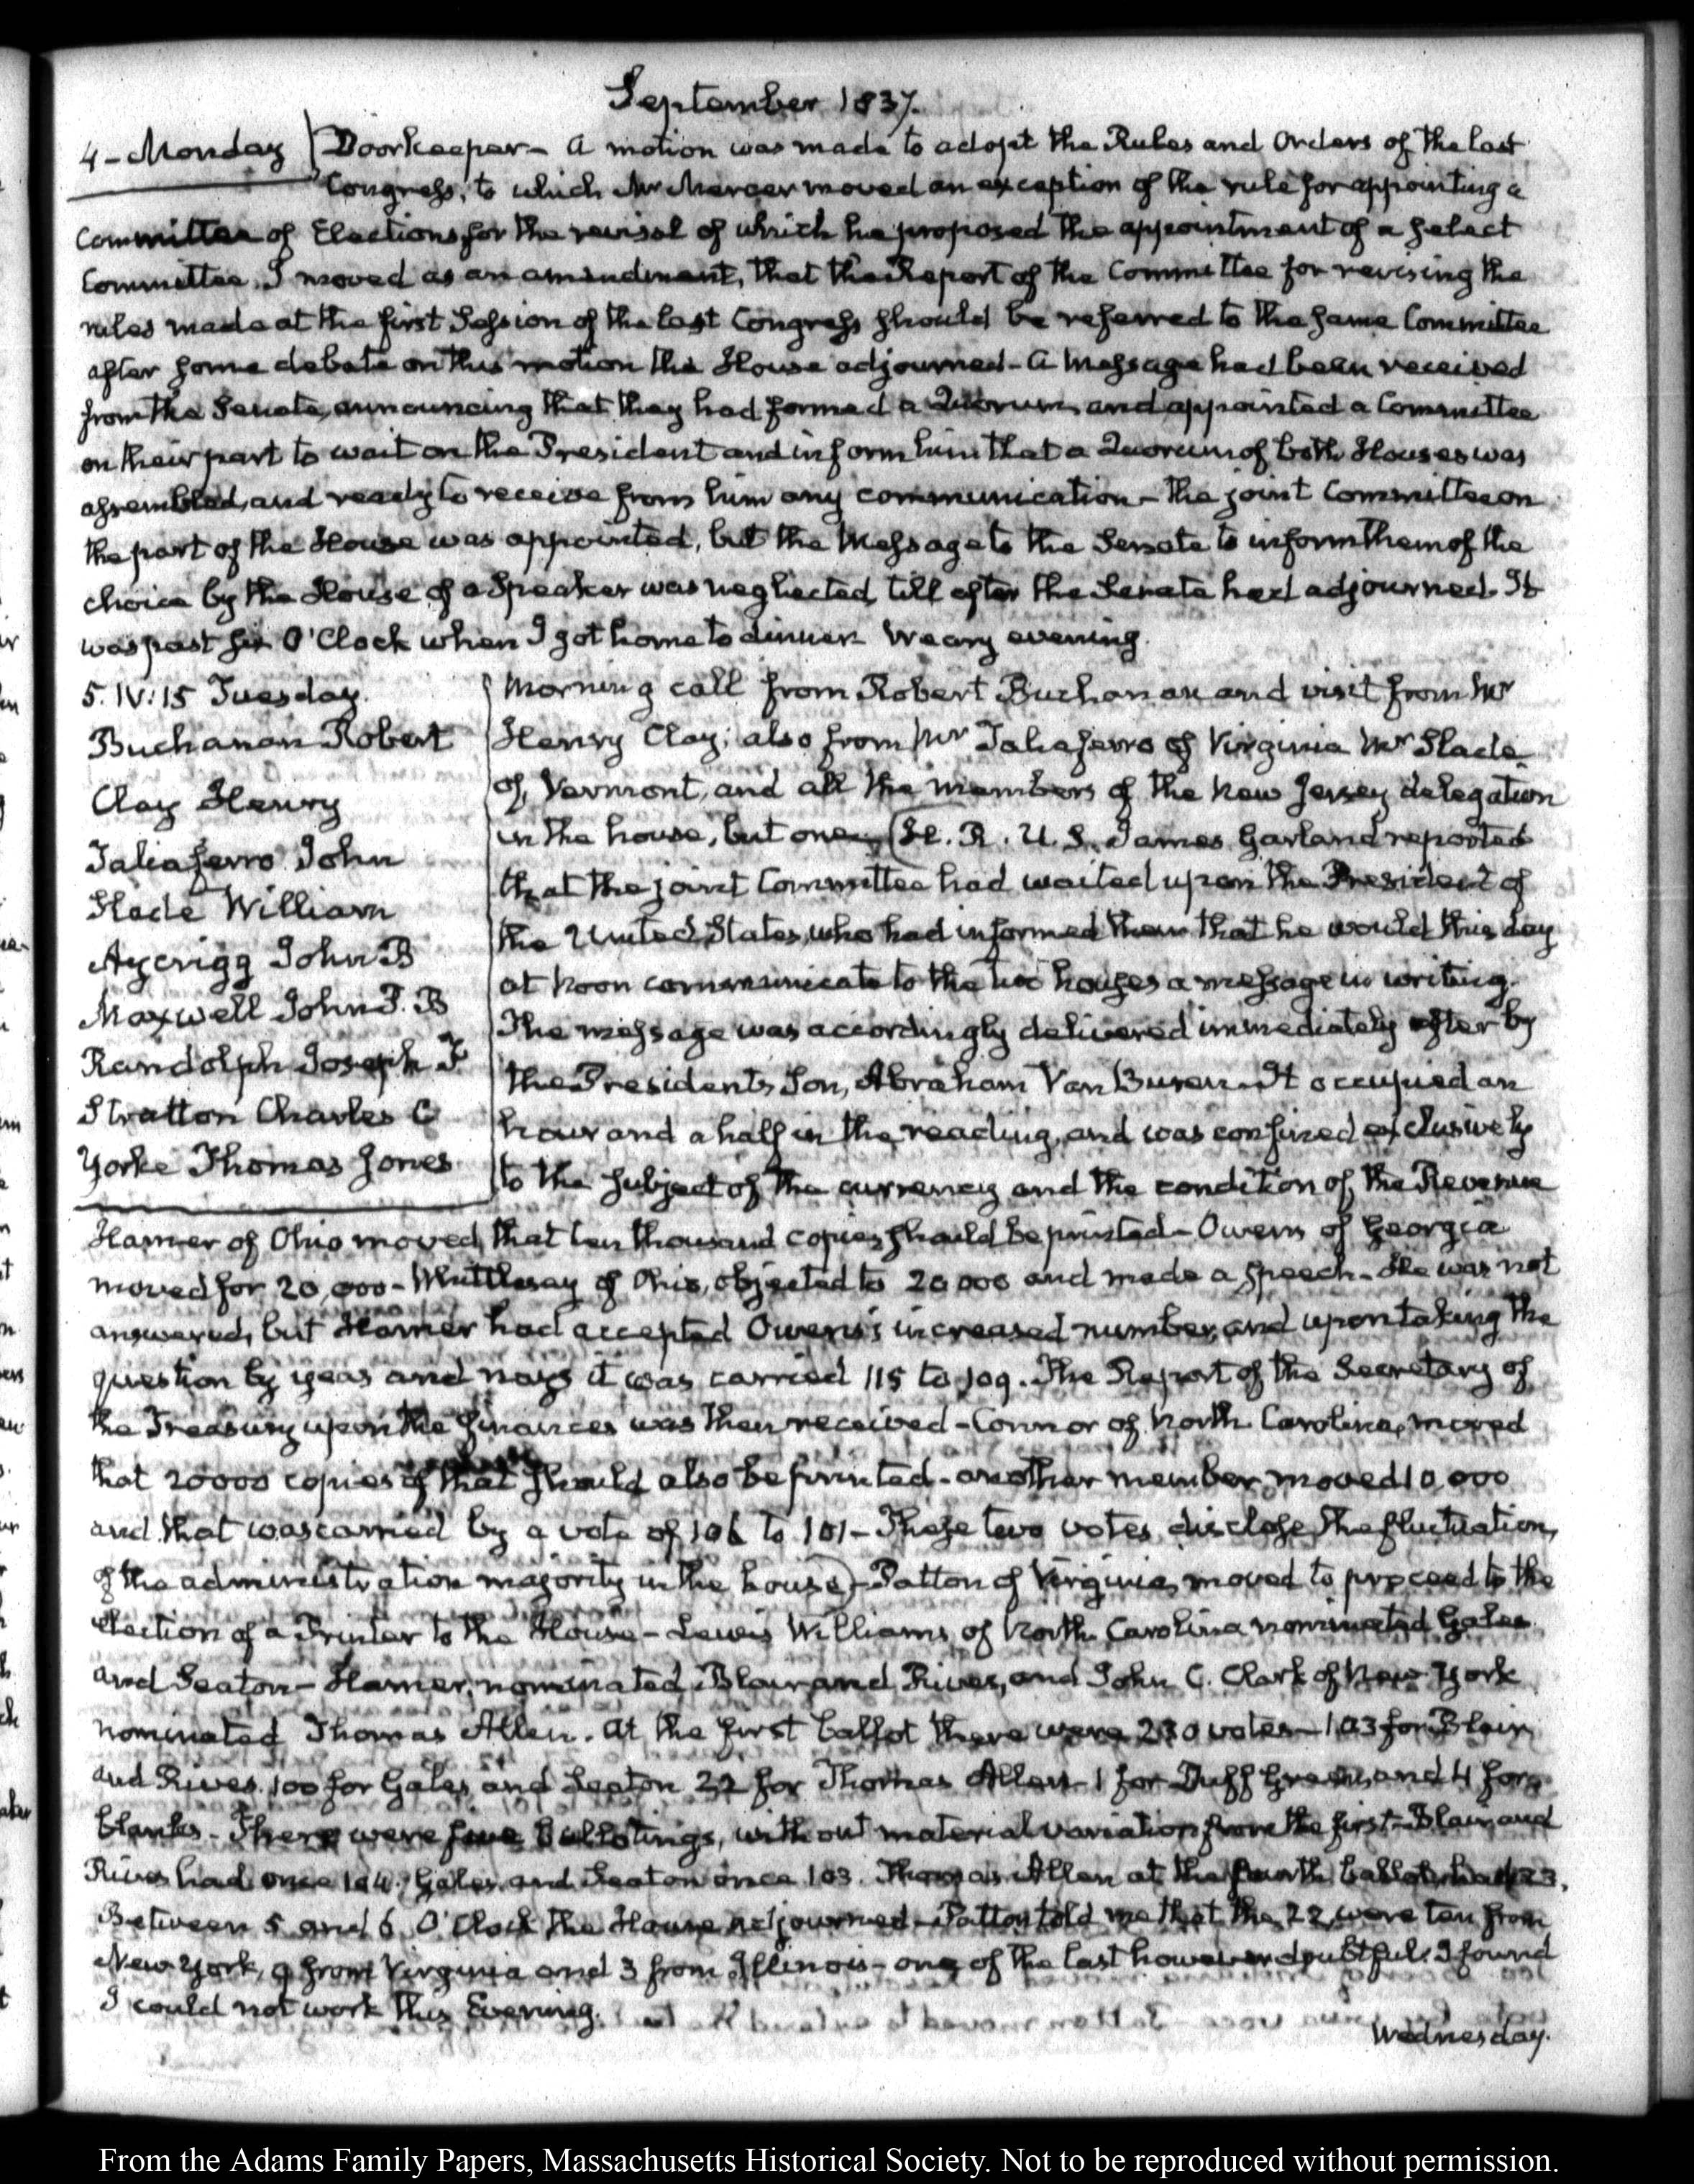 September 1837.
4 - Monday
Doorkeeper - A motion was made to adopt the Rules and Orders of the last
Congress, to which Mr Mercer moved an exception of the rule for appointing a
Committee of Elections, for the revisal of which he proposed the appointment of a select
Committee. I moved as an amendment, that the Report of the Committee for revising the
rules made at the first Session of the last Congress should be referred to the same Committee
after some debate on this motion the House adjourned - A Message had been received
from the Senate, announcing that they had formed a Quorum, and appointed a Committee
on their part to wait on the President and inform him that a Quorum of both Houses was
assembled, and ready to receive from him any communication - the joint Committee on
the part of the House was appointed, but the Message to the Senate to inform them of the
choice by the House of a Speaker was neglected till after the Senate had adjourned. It
was past six O'Clock when I got home to dinner. Weary evening.
5. IV: 15 Tuesday.
Buchanan Robert
Clay Henry
Taliaferro John
Slade William
Aycrigg John B
Maxwell John P. B
Randolph Joseph F
Stratton Charles C
Yorke Thomas Jones
Morning call from Robert Buchanan and visit from Mr
Henry Clay; also from Mr Taliaferro of Virginia Mr Slade
of Vermont, and all the members of the New Jersey delegation
in the house, but one. (H. R. U. S. James Garland reported
that the joint Committee had waited upon the President of
the United States, who had informed them that he would this day
at Noon communicate to the two houses a message in writing.
The message was accordingly delivered immediately after by
the President's Son, Abraham Van Buren. It occupied an
hour and a half in the reading, and was confined exclusively
to the subject of the currency and the condition of the Revenue
Hamer of Ohio moved that ten thousand copies should be printed - Owens of Georgia
moved for 20,000 - Whittlesey of Ohio, objected to 20 000 and made a speech - He was not
answered, but Hamer had accepted Owens's increased number, and upon taking the
question by yeas and nays it was carried 115 to 109. The Report of the Secretary of
the Treasury upon the finances was then received - Connor of North Carolina, moved
that 20000 copies of that should also be printed - another member moved 10,000
and that was carried by a vote of 106 to 101 - These two votes disclose the fluctuation,
of the administration majority in the house) - Patton of Virginia, moved to proceed to the
election of a Printer to the House - Lewis Williams of North Carolina nominated Gales
and Seaton - Hamer, nominated Blair and Rives, and John C. Clark of New York
nominated Thomas Allen. At the first ballot there were 230 votes - 103 for Blair
and Rives. 100 for Gales and Seaton 22 for Thomas Allen - 1 for Duff Green, and 4 for
blanks - There were five ballotings, without material variation from the first - Blair and
Rives had once 104. Gales and Seaton once 103. Thomas Allen at the fourth ballot had 23.
Between 5 and 6 O'Clock the House adjourned - Patton told me that the 22 were ten from
New York, 9 from Virginia and 3 from Illinois - one of the last however doubtful. I found
I could not work this Evening.
Wednesday.
From the Adams Family Papers, Massachusetts Historical Society. Not to be reproduced without permission.